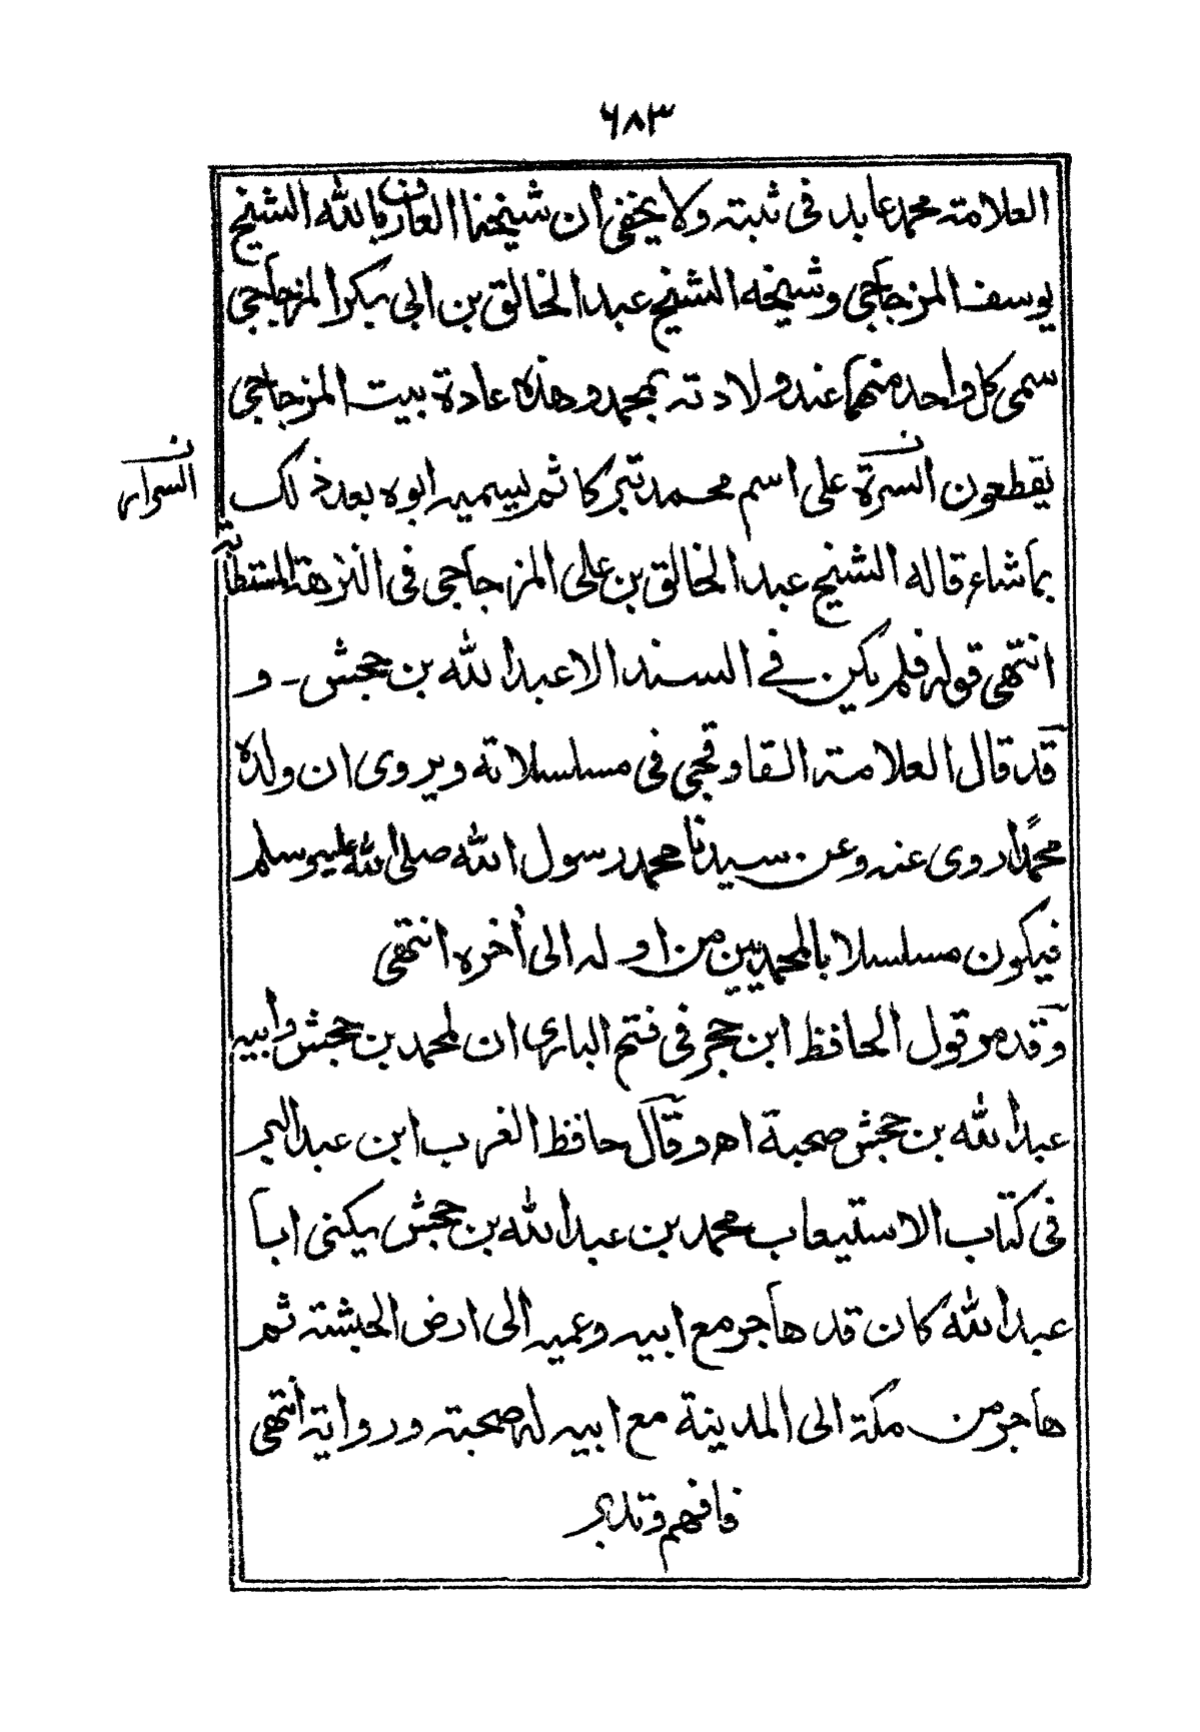 ٦٨٣
العلامة محمد عابد فى ثبته ولا يخفى ان شيخنا العارف بالله الشيخ
يوسف المزجاجى وشيخه الشيخ عبد الخالق بن ابى بكر المزجاجى
سمى كل واحد منهما عند ولادته بمحمد وهذه عادة بيت المزجاجى
يقطعون السرة على اسم محمد تبركا ثم يسميه ابوه بعد ذلك
ن
السرار
بما شاء قاله الشيخ عبد الخالق بن على المزجاجى فى النزهة المستطابة
انتهى قوله فلم يكن فى السند الا عبد الله بن جحش - و
قد قال العلامة القاوقجى فى مسلسلاته ويروى ان ولده
محمدًا روى عنه وعن سيدنا محمد رسول الله صلى الله عليه وسلم
فيكون مسلسلا بالمحمديين من اوله الى أخره انتهى
وقد مر قول الحافظ ابن حجر فى فتح البارى ان لمحمد بن جحش وابيه
عبد الله بن جحش صحبة اه وقال حافظ الغرب ابن عبد البر
فى كتاب الاستيعاب محمد بن عبد الله بن جحش يكنى ابا
عبد الله كان قد هاجر مع ابيه وعميه الى ارض الحبشة ثم
هاجر من مكة الى المدينة مع ابيه له صحبة ورواية انتهى
فافهم وتدبر